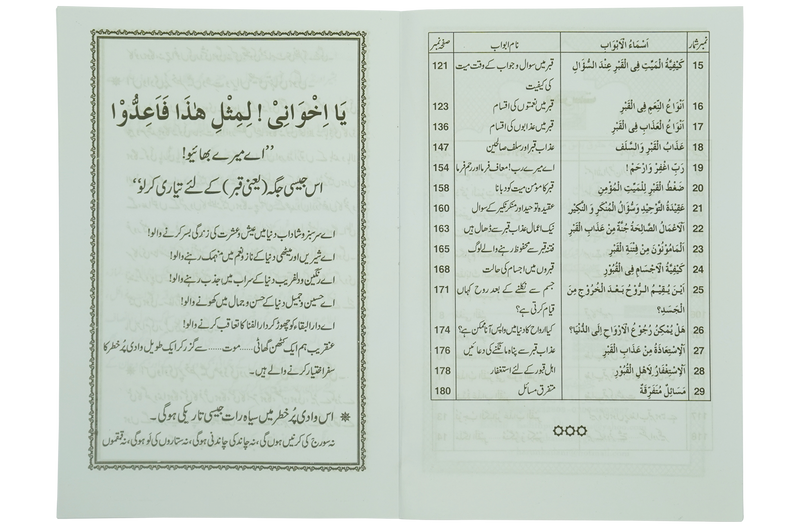 نمبر شمار اَسْمَاءُ الْاَبْوَاب نام ابواب صفحہ نمبر
15 كَيْفِيَّةُ الْمَيِّتِ فِى الْقَبْرِ عِنْدَ السُّؤَالِ قبر میں سوال و جواب کے وقت میت 121
کی کیفیت
16 اَنْوَاعُ النِّعَمِ فِى الْقَبْرِ قبر میں نعمتوں کی اقسام 123
17 اَنْوَاعُ الْعَذَابِ فِى الْقَبْرِ قبر میں عذابوں کی اقسام 136
18 عَذَابُ الْقَبْرِ وَالسَّلَفُ عذاب قبر اور سلف صالحین 147
19 رَبِّ اغْفِرْ وَارْحَمْ! اے میرے رب! معاف فرما اور رحم فرما 154
20 ضَغْطُ الْقَبْرِ لِلْمَيِّتِ الْمُؤْمِنِ قبر کا مؤمن میت کو دبانا 158
21 عَقِيْدَةُ التَّوْحِيْدِ وَسُؤَالُ الْمُنْكَرِ وَالنَّكِيْرِ عقیدہ توحید اور منکر نکیر کے سوال 160
22 اَلْاَعْمَالُ الصَّالِحَةُ جُنَّةٌ مِنْ عَذَابِ الْقَبْرِ نیک اعمال عذاب قبر سے ڈھال ہیں 163
23 اَلْمَامُوْنُوْنَ مِنْ فِتْنَةِ الْقَبْرِ فتنہ قبر سے محفوظ رہنے والے لوگ 165
24 كَيْفِيَّةُ الْاَجْسَامِ فِى الْقُبُوْرِ قبروں میں اجسام کی حالت 168
25 اَيْنَ يُقِيْمُ الرُّوْحُ بَعْدَ الْخُرُوْجِ مِنَ جسم سے نکلنے کے بعد روح کہاں 171
الْجَسَدِ؟ قیام کرتی ہے؟
26 هَلْ يُمْكِنُ رُجُوْعُ الْاَرْوَاحِ اِلَى الدُّنْيَا؟ کیا ارواح کا دنیا میں واپس آنا ممکن ہے؟ 174
27 اَلْاِسْتِعَاذَةُ مِنْ عَذَابِ الْقَبْرِ عذاب قبر سے پناہ مانگنے کی دعائیں 176
28 اَلْاِسْتِغْفَارُ لِاَهْلِ الْقُبُوْرِ اہل قبور کے لئے استغفار 178
29 مَسَائِلُ مُتَفَرِّقَةٌ متفرق مسائل 180
يَا اِخْوَانِىْ! لِمِثْلِ هٰذَا فَاَعِدُّوْا
”اے میرے بھائیو!
اس جیسی جگہ (یعنی قبر) کے لئے تیاری کر لو“
اے سرسبز و شاداب دنیا میں عیش و عشرت کی زندگی بسر کرنے والو!
اے شیریں اور میٹھی دنیا کے ناز و نعم میں منہمک رہنے والو!
اے رنگین و دلفریب دنیا کے سراب میں جذب رہنے والو!
اے حسین و جمیل دنیا کے حسن و جمال میں کھونے والو!
اے دار البقاء کو چھوڑ کر دار الفنا کا تعاقب کرنے والو!
عنقریب ہم ایک کٹھن گھاٹی ..... موت ..... سے گزر کر ایک طویل وادی پر خطر کا
سفر اختیار کرنے والے ہیں۔
اس وادی پر خطر میں سیاہ رات جیسی تاریکی ہوگی۔
نہ سورج کی کرنیں ہوں گی، نہ چاند کی چاندنی ہوگی، نہ ستاروں کی لو ہوگی، نہ قمقموں